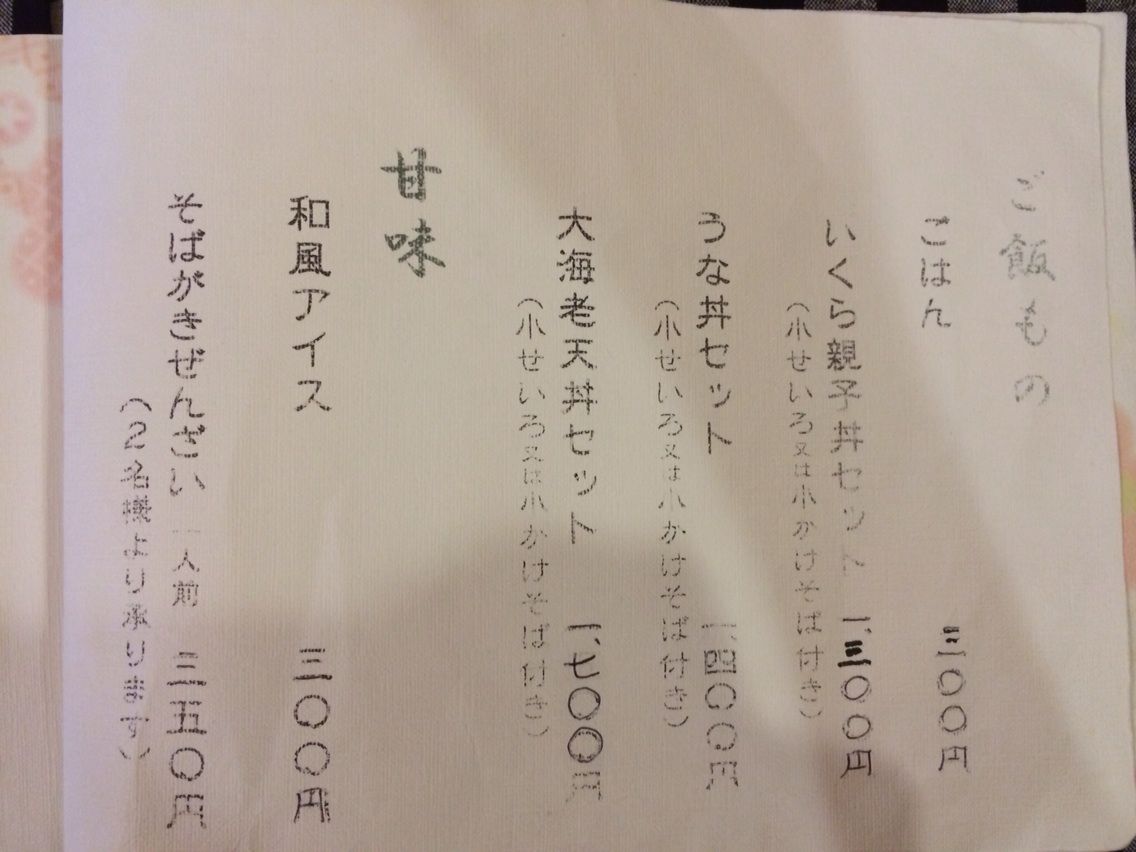 ご飯もの
ごはん 三〇〇円
いくら親子丼セット 一、三〇〇円
（小せいろ又は小かけそば付き）
うな丼セット 一、四〇〇円
（小せいろ又は小かけそば付き）
大海老天丼セット 一、七〇〇円
（小せいろ又は小かけそば付き）
甘味
和風アイス 三〇〇円
そばがきぜんざい 一人前 三五〇円
（2名様より承ります）